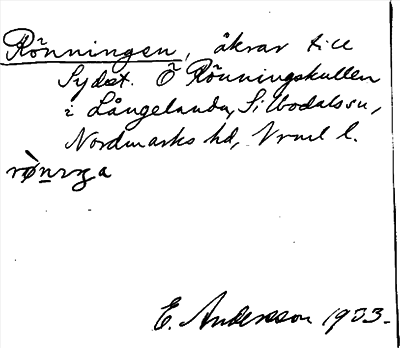 Rönningen, åkrar till
Sydöst. Ö Rönningskullen
i Långelanda, Silbodals sn,
Nordmarks hd, Vrml l.
rø̀nɪŋa
E. Andersson 1933.